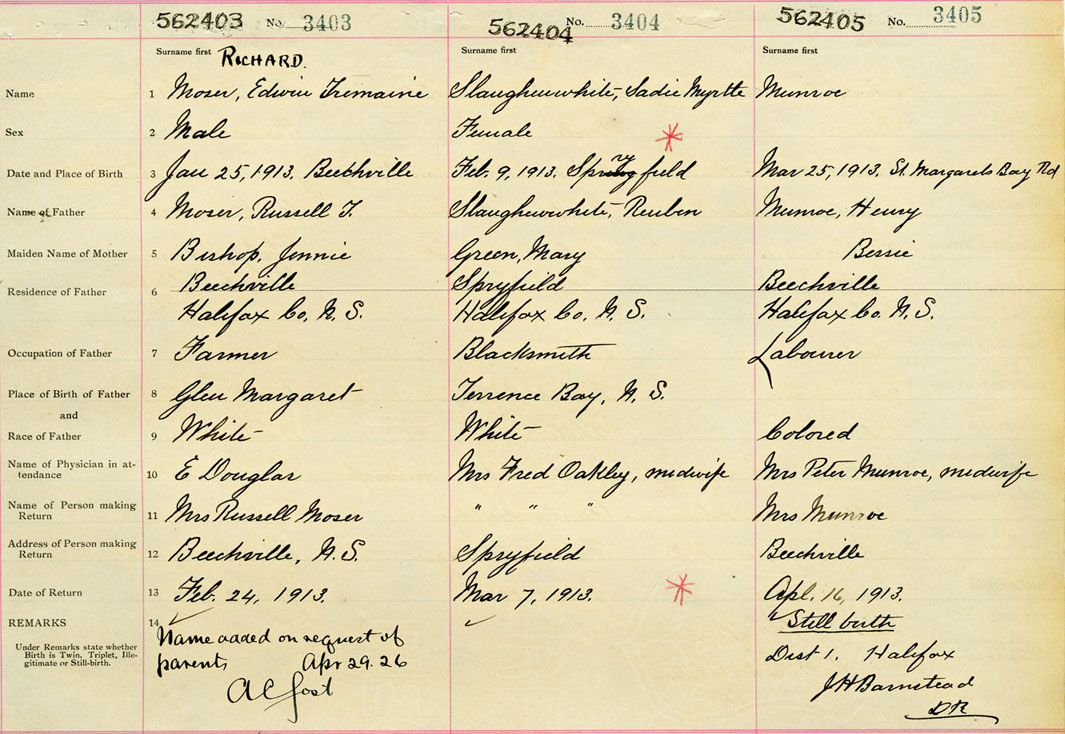 562403 No. 3403 562404 No. 3404 562405 No. 3405
Surname first RICHARD. Surname first Surname first
Name 1 Moser, Edwin Tremaine Slaughenwhite, Sadie Myrtle Munroe
Sex 2 Male Female
Date and Place of Birth 3 Jan 25, 1913, Beechville Feb. 9, 1913. Spryfield Mar 25, 1913, St. Margarets Bay Rd
Name of Father 4 Moser, Russell T. Slaughenwhite, Reuben Munroe, Henry
Maiden Name of Mother 5 Bishop, Jennie Green, Mary Bessie
Residence of Father 6 Beechville Spryfield Beechville
Halifax Co. N. S. Halifax Co. N. S. Halifax Co. N. S.
Occupation of Father 7 Farmer Blacksmith Labourer
Place of Birth of Father 8 Glen Margaret Terrence Bay, N. S.
and
Race of Father 9 White White Colored
Name of Physician in at-
tendance 10 E Douglas Mrs Fred Oakley, midwife Mrs Peter Munroe, midwife
Name of Person making
Return 11 Mrs Russell Moser " " " Mrs Munroe
Address of Person making
Return 12 Beechville, N. S. Spryfield Beechville
Date of Return 13 Feb. 24, 1913. Mar 7, 1913. Apl. 16, 1913.
REMARKS 14 Still birth
Under Remarks state whether
Birth is Twin, Triplet, Ille-
gitimate or Still-birth.
Name added on request of
parents Apr 29. 26
A C Gost
Dist 1. Halifax
J H Barnstead
DR